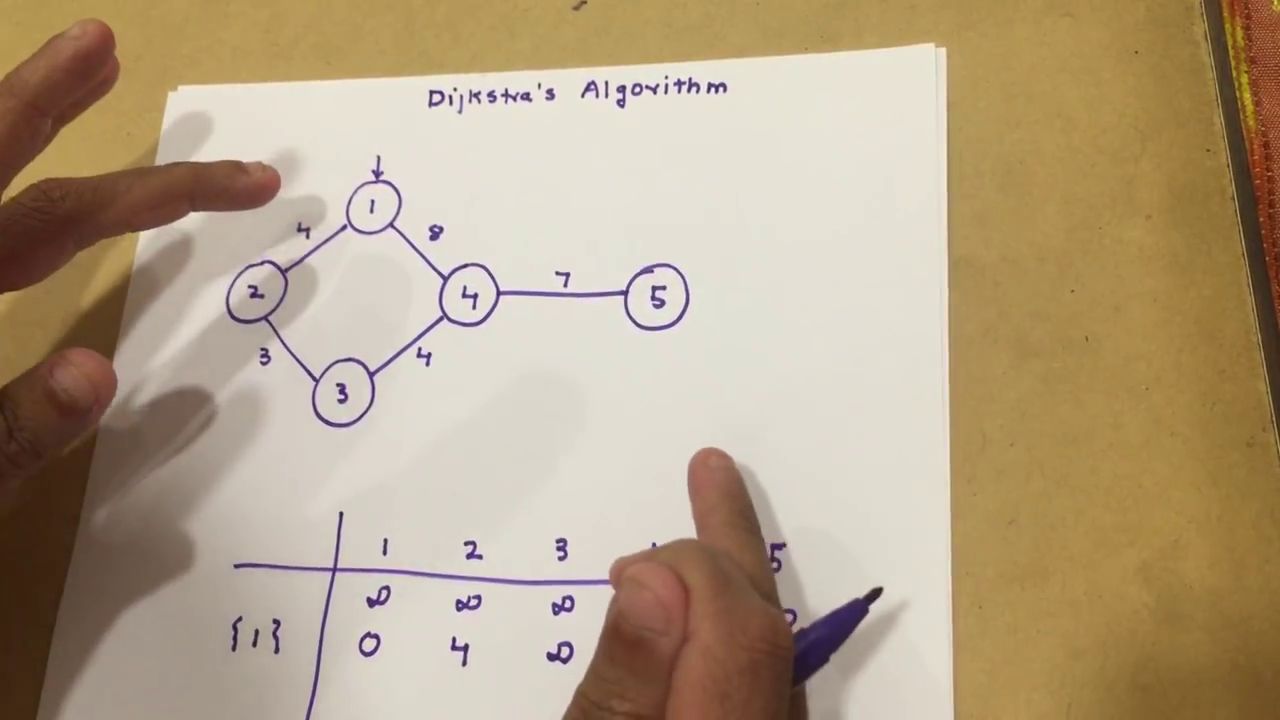 Dijkstra's Algorithm
1
4 8
2 4 7 5
3 4
3
1 2 3 5
∞ ∞ ∞
{1} 0 4 ∞